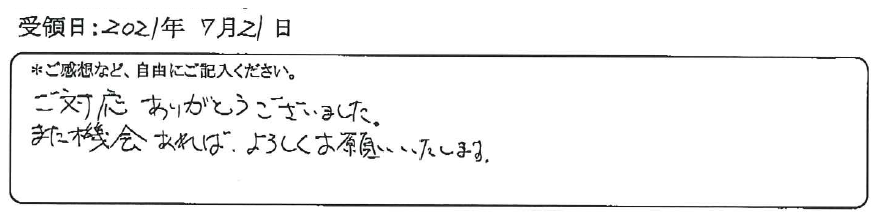 受領日:2021年 7月21日
*ご感想など、自由にご記入ください。
ご対応 ありがとうございました。
また機会あれば、よろしくお願いいたします。